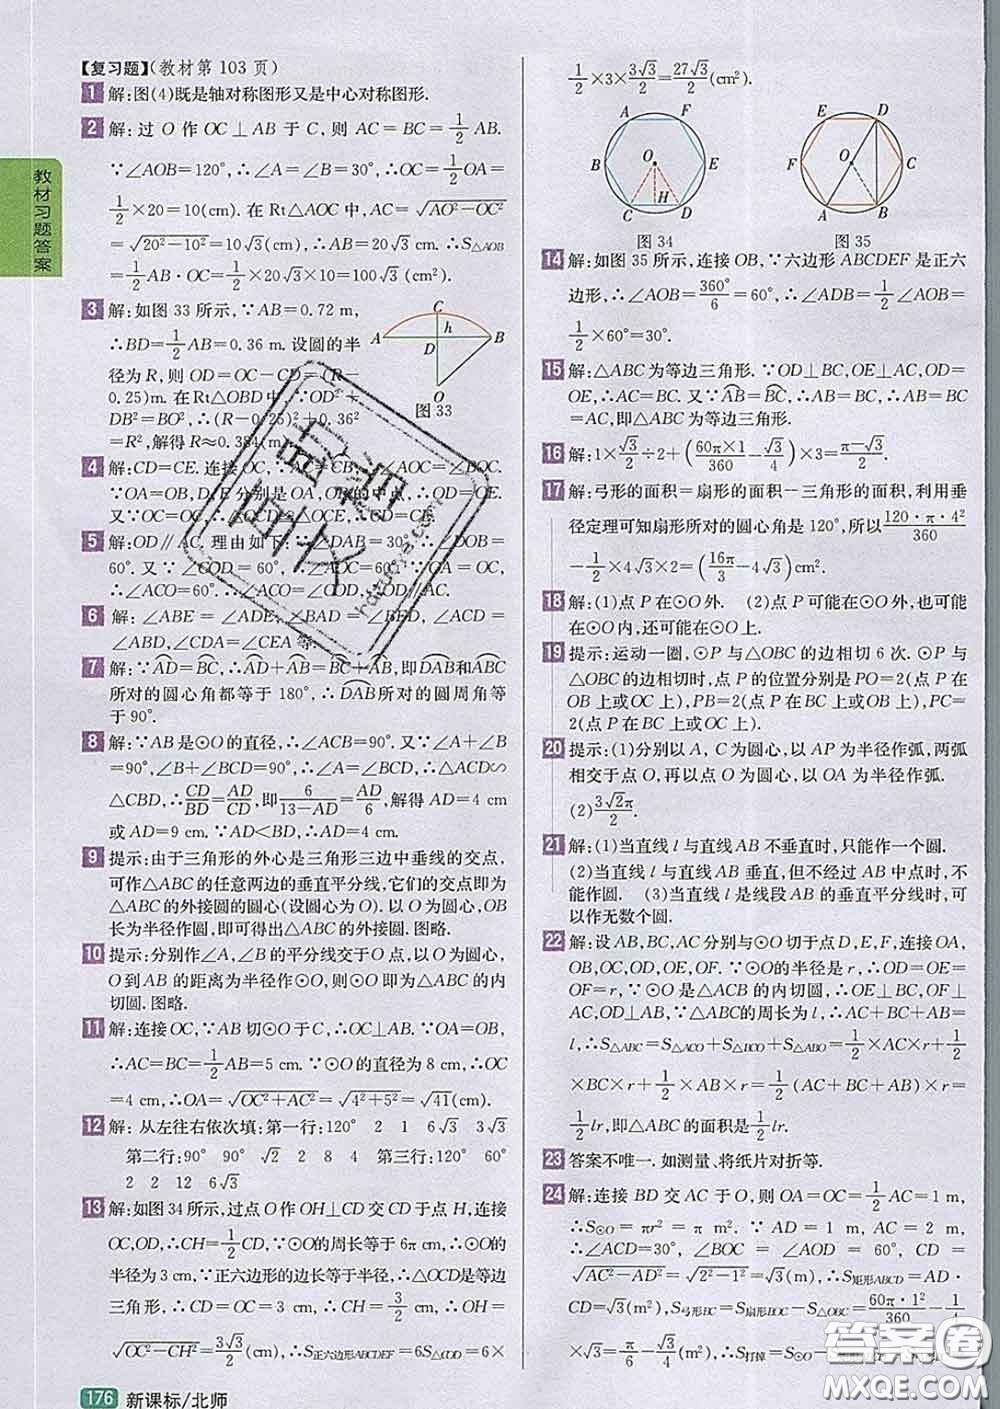 【复习题】(教材第 103 页)
1 解:图(4)既是轴对称图形又是中心对称图形.
2 解:过 O 作 OC⊥AB 于 C,则 AC=BC=1/2 AB.
∵∠AOB=120°,∴∠A=∠B=30°.∴OC=1/2 OA=
1/2×20=10(cm).在 Rt△AOC 中,AC=√(AO²-OC²)
=√(20²-10²)=10√3(cm),∴AB=20√3 cm.∴S△AOB
=1/2 AB·OC=1/2×10×20√3=100√3(cm²).
3 解:如图 33 所示,∵AB=0.72 m,
∴BD=1/2 AB=0.36 m.设圆的半
径为 R,则 OD=OC-CD=(R-
0.25)m.在 Rt△OBD 中,∵OD²+
DB²=BO²,∴(R-0.25)²+0.36²
=R²,解得 R≈0.384(m).
A B C D O h
图 33
4 解:CD=CE.连接 OC,∵AC=CB,∴∠AOC=∠BOC.
∵OA=OB,D,E 分别是 OA,OB 的中点,∴OD=OE.
又∵OC=OC,∴△COD≌△COE.∴CD=CE.
5 解:OD∥AC.理由如下:∵∠DAB=30°,∴∠DOB=
60°.又∵∠COD=60°,∴∠AOC=60°.∵OA=OC,
∴∠ACO=60°.∴∠ACO=∠COD,∴OD∥AC.
6 解:∠ABE=∠ADE,∠BAD=∠BED,∠ACD=
∠ABD,∠CDA=∠CEA 等.
7 解:∵AD=BC,∴AD+AB=BC+AB,即DAB和ABC
所对的圆心角都等于 180°,∴DAB所对的圆周角等
于 90°.
8 解:∵AB是⊙O的直径,∴∠ACB=90°.又∵∠A+∠B
=90°,∠B+∠BCD=90°,∴∠A=∠BCD,∴△ACD∽
△CBD,∴CD/BD=AD/CD,即6/(13-AD)=AD/6,解得 AD=4 cm
或 AD=9 cm.∵AD<BD,∴AD=4 cm.
9 提示:由于三角形的外心是三角形三边中垂线的交点,
可作△ABC的任意两边的垂直平分线,它们的交点即为
△ABC的外接圆的圆心(设圆心为 O).以 O 为圆心,OB
长为半径作圆,即可得出△ABC的外接圆.图略.
10 提示:分别作∠A,∠B 的平分线交于 O 点,以 O 为圆心,
O 到 AB 的距离为半径作⊙O,则⊙O 即为△ABC 的内
切圆.图略.
11 解:连接 OC,∵AB 切⊙O 于 C,∴AC⊥OC.∵OA=OB,
∴AC=BC=1/2 AB=5 cm.∵⊙O 的直径为 8 cm,∴OC
=4 cm,∴OA=√(OC²+AC²)=√(4²+5²)=√41(cm).
12 解:从左往右依次填:第一行:120° 2 1 6√3 3√3
第二行:90° 90° √2 2 8 4 第三行:120° 60°
2 2 12 6√3
13 解:如图 34 所示,过点 O 作 OH⊥CD 交 CD 于点 H,连接
OC,OD,∴CH=1/2 CD,∵⊙O的周长等于 6π cm,∴⊙O的
半径为 3 cm,∵正六边形的边长等于半径,∴△OCD是等边
三角形,∴CD=OC=3 cm,∴CH=3/2 cm,∴OH=
√(OC²-CH²)=3√3/2(cm),∴S正六边形ABCDEF=6S△OCD=6×
1/2×3×3√3/2=27√3/2(cm²).
A F B O E C H D
图 34
E D F O C A B
图 35
14 解:如图 35 所示,连接 OB,∵六边形 ABCDEF 是正六
边形,∴∠AOB=360°/6=60°,∴∠ADB=1/2∠AOB=
1/2×60°=30°.
15 解:△ABC为等边三角形.∵OD⊥BC,OE⊥AC,OD=
OE,∴AC=BC.又∵AB=BC,∴AB=BC.∴AB=BC
=AC,即△ABC为等边三角形.
16 解:1×√3/2÷2+(60π×1/360-√3/4)×3=(π-√3)/2.
17 解:弓形的面积=扇形的面积-三角形的面积,利用垂
径定理可知扇形所对的圆心角是 120°,所以120·π·4²/360
-1/2×4√3×2=(16π/3-4√3)cm².
18 解:(1)点 P 在⊙O 外. (2)点 P 可能在⊙O 外,也可能
在⊙O 内,还可能在⊙O 上.
19 提示:运动一圈,⊙P 与△OBC 的边相切 6 次.⊙P 与
△OBC 的边相切时,点 P 的位置分别是 PO=2(点 P 在
OB 上或 OC 上),PB=2(点 P 在 BC 上或 OB 上),PC=
2(点 P 在 BC 上或 OC 上).
20 提示:(1)分别以 A,C 为圆心,以 AP 为半径作弧,两弧
相交于点 O,再以点 O 为圆心,以 OA 为半径作弧.
(2)3√2π/2.
21 解:(1)当直线 l 与直线 AB 不垂直时,只能作一个圆.
(2)当直线 l 与直线 AB 垂直,但不经过 AB 中点时,不
能作圆. (3)当直线 l 是线段 AB 的垂直平分线时,可
以作无数个圆.
22 解:设 AB,BC,AC 分别与⊙O 切于点 D,E,F,连接 OA,
OB,OC,OD,OE,OF.∵⊙O 的半径是 r,∴OD=OE=
OF=r.∵⊙O 是△ACB 的内切圆,∴OE⊥BC,OF⊥
AC,OD⊥AB.∵△ABC的周长为 l,∴AC+BC+AB=
l,∴S△ABC=S△ACO+S△BCO+S△ABO=1/2×AC×r+1/2
×BC×r+1/2×AB×r=1/2(AC+BC+AB)×r=
1/2 lr,即△ABC 的面积是1/2 lr.
23 答案不唯一.如测量、将纸片对折等.
24 解:连接 BD 交 AC 于 O,则 OA=OC=1/2 AC=1 m,
∴S⊙O=πr²=π m².∵AD=1 m,AC=2 m,
∴∠ACD=30°,∠BOC=∠AOD=60°,CD=
√(AC²-AD²)=√(2²-1²)=√3(m),∴S矩形ABCD=AD·
CD=√3(m²),S弓形BC=S扇形BOC-S△OBC=60π·1²/360-1/4
×√3=π/6-√3/4(m²),∴S打掉=S⊙O-S
教材习题答案
176 新课标/北师
答案圈
MXQE.COM